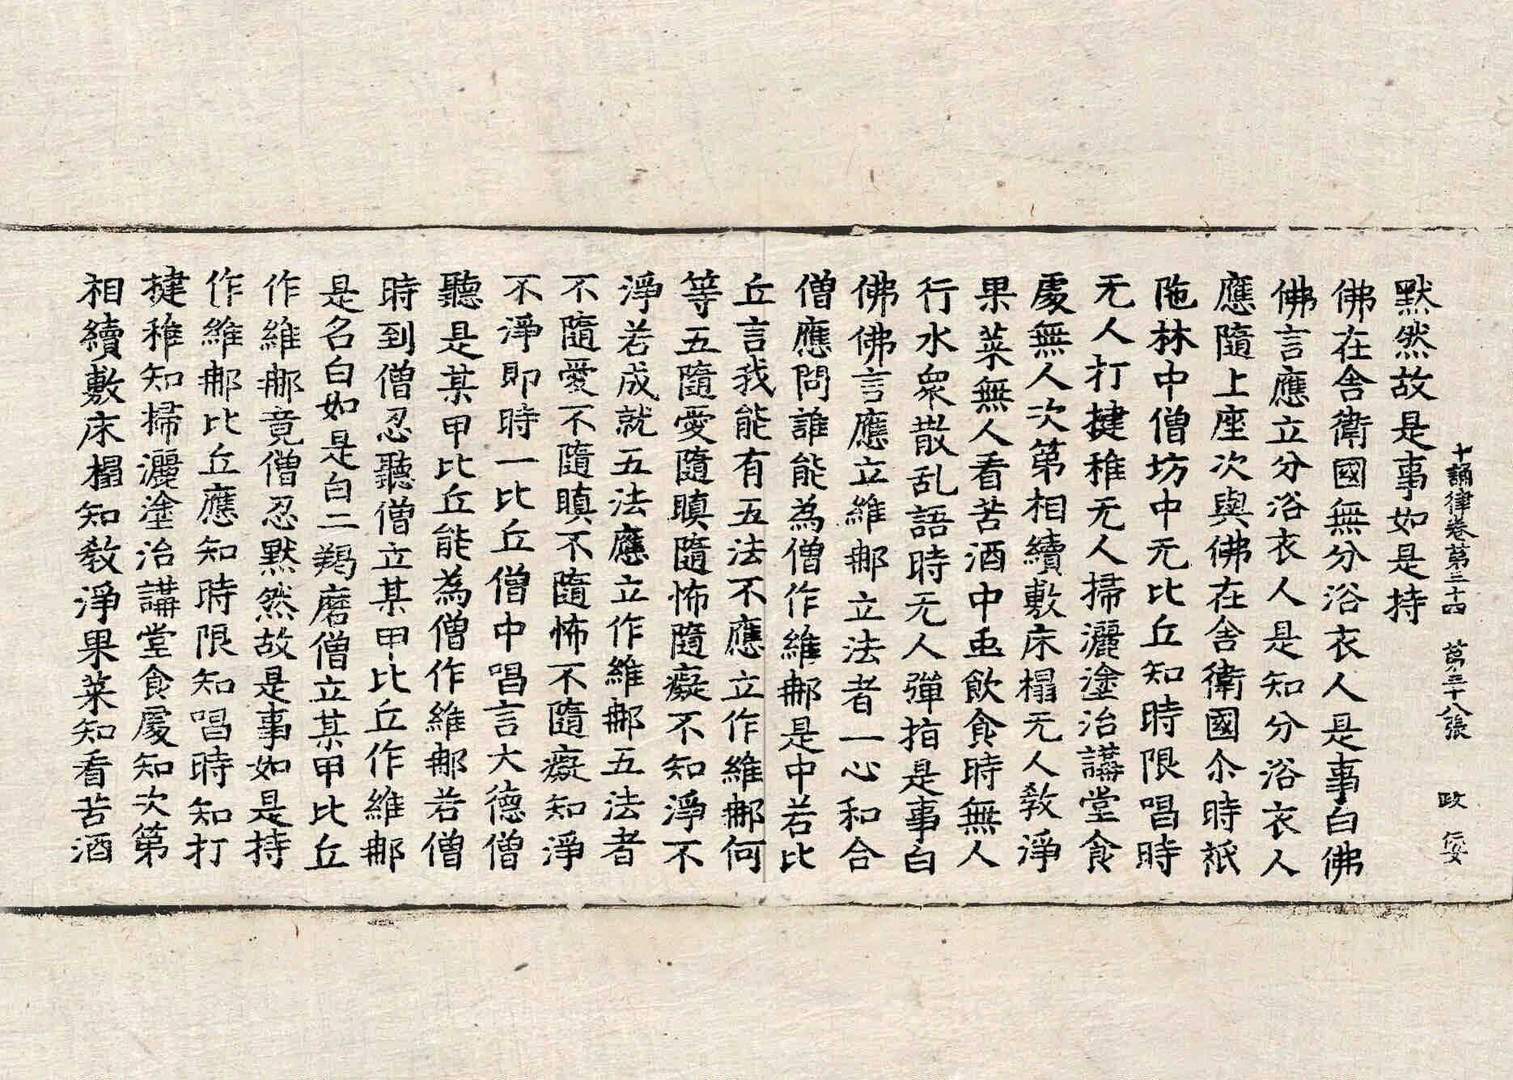 十誦律卷第三十四 第三十八張 政
默然故是事如是持
佛在舍衛國無分浴衣人是事白佛
佛言應立分浴衣人是知分浴衣人
應隨上座次與佛在舍衛國尒時祇
陁林中僧坊中无比丘知時限唱時
无人打揵稚无人掃灑塗治講堂食
處無人次第相續敷床榻无人教淨
果菜無人看苦酒中䖝飲食時無人
行水衆散乱語時无人彈指是事白
佛佛言應立維那立法者一心和合
僧應問誰能為僧作維那是中若比
丘言我能有五法不應立作維那何
等五隨愛隨瞋隨怖隨癡不知淨不
淨若成就五法應立作維那五法者
不隨愛不隨瞋不隨怖不隨癡知淨
不淨即時一比丘僧中唱言大德僧
聽是某甲比丘能為僧作維那若僧
時到僧忍聽僧立某甲比丘作維那
是名白如是白二羯磨僧立某甲比丘
作維那竟僧忍默然故是事如是持
作維那比丘應知時限知唱時知打
揵稚知掃灑塗治講堂食處知次第
相續敷床榻知教淨果菜知看苦酒